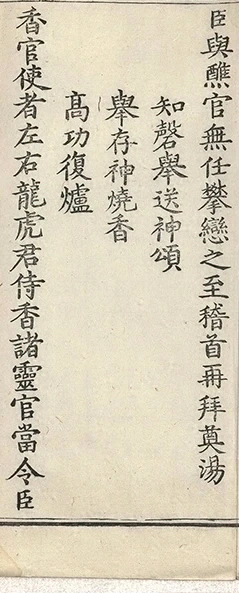 臣與醮官無任攀戀之至稽首再拜奠湯
知磬舉送神頌
舉存神燒香
高功復爐
香官使者左右龍虎君侍香諸靈官當令臣